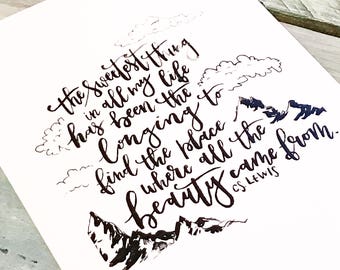 the sweetest thing
in all my life
has been the
longing to
find the place
where all the
beauty came from.
CS LEWIS